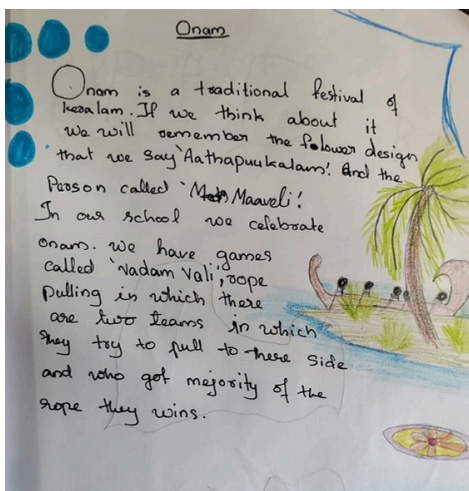 Onam
Onam is a traditional festival of
keralam. If we think about it
we will remember the folower design
that we say 'Aathapuukalam'. And the
Person called 'Maaveli'.
In our school we celebrate
onam. we have games
called 'vadam vali', rope
pulling is which there
are two teams in which
they try to pull to there side
and who got mejority of the
rope they wins.